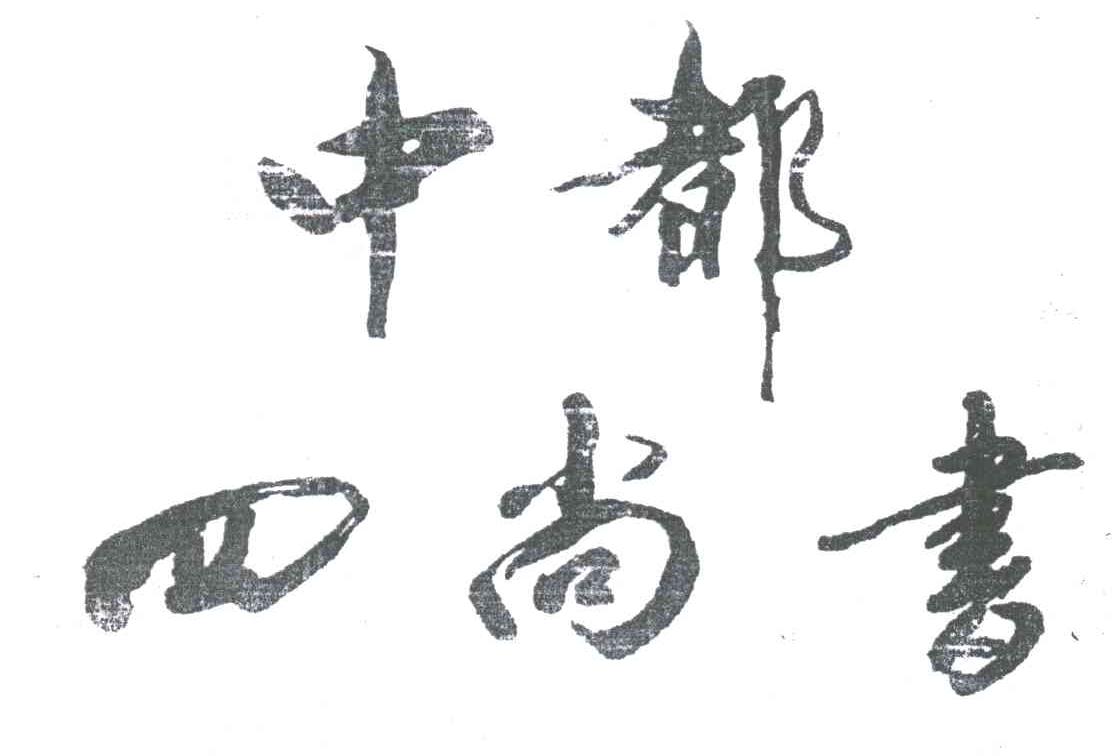 中都
四尚書